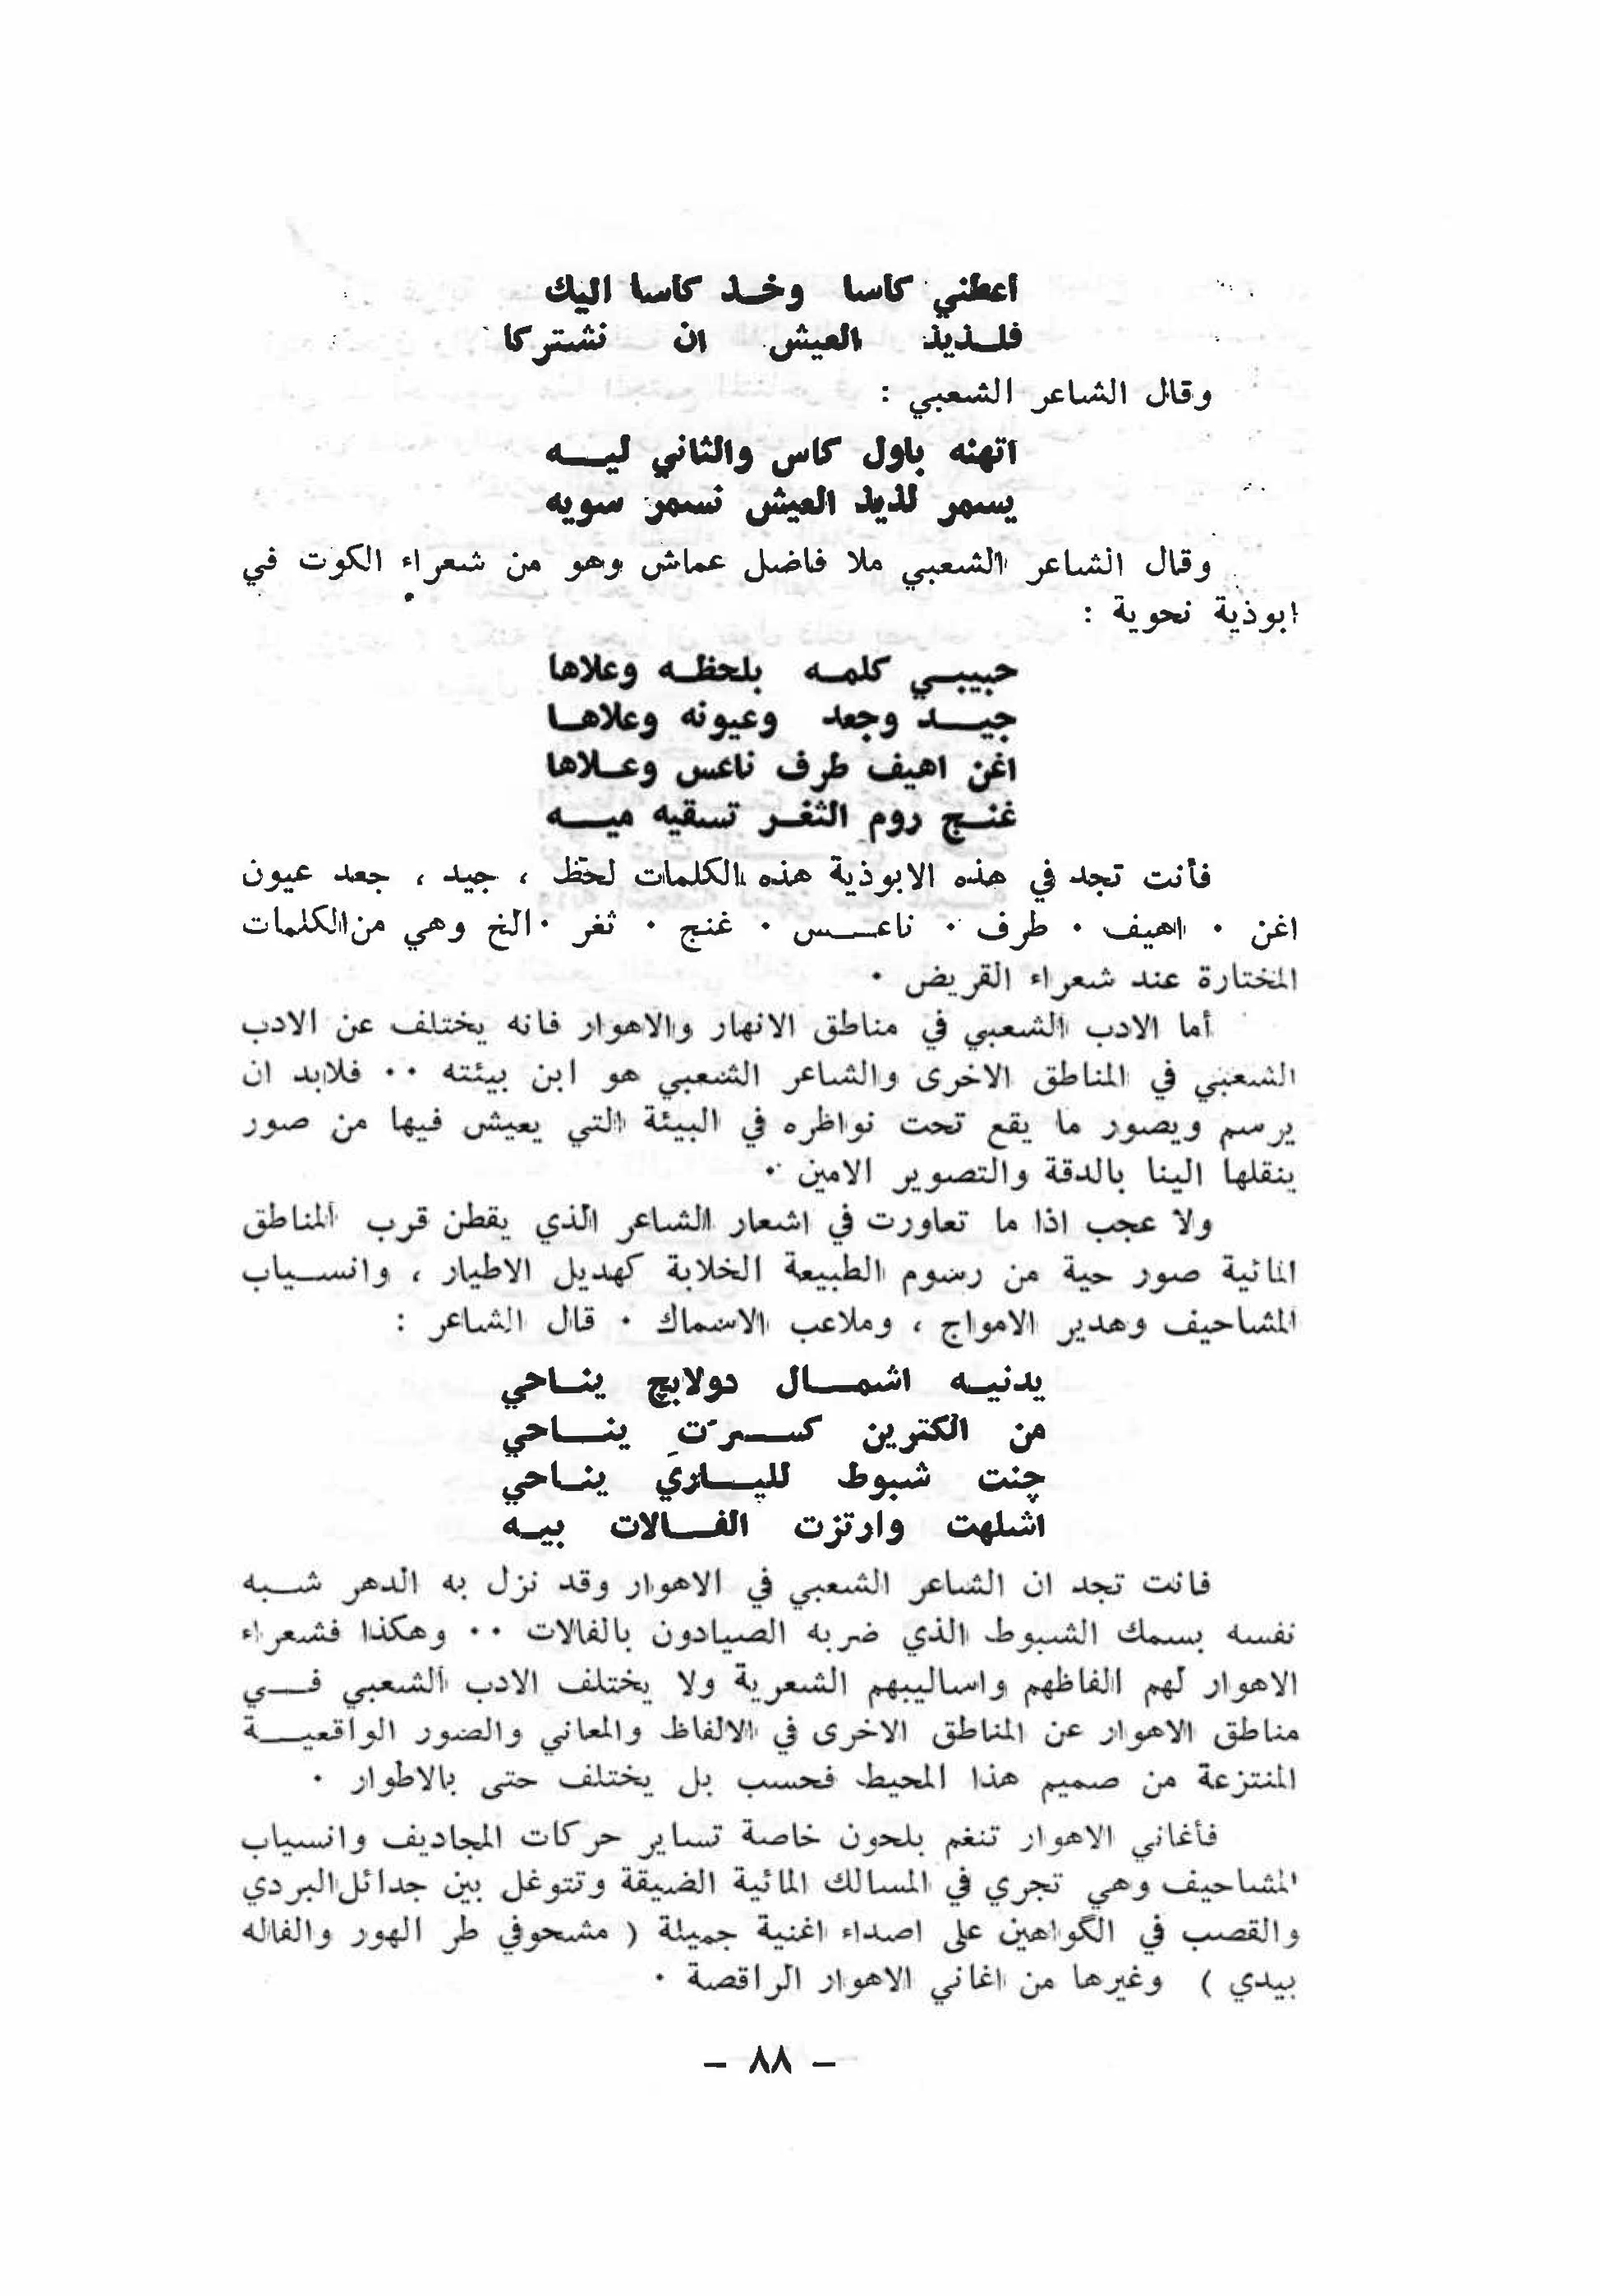 اعطني كاسا وخـذ كاسا اليك
فلـذيذ العيش ان نشتركا
وقال الشاعر الشعبي :
اتهنه باول كاس والثاني ليـه
يسمر لذيذ العيش نسمر سويه
وقال الشاعر الشعبي ملا فاضل عماش وهو من شعراء الكوت في
ابوذية نحوية :
حبيبـي كلمـه بلحظـه وعلاها
جيـد وجعد وعيونه وعلاهـا
اغن اهيف طرف ناعس وعـلاها
غنـج روم الثغـر تسقيه ميـه
فأنت تجد في هذه الابوذية هذه الكلمات لحظ ، جيد ، جعد عيون
اغن ٠ اهيف ٠ طرف ٠ ناعـس ٠ غنج ٠ ثغر ٠ الخ وهي من الكلمات
المختارة عند شعراء القريض ٠
أما الادب الشعبي في مناطق الانهار والاهوار فانه يختلف عن الادب
الشعبي في المناطق الاخرى والشاعر الشعبي هو ابن بيئته ٠٠ فلابد ان
يرسم ويصور ما يقع تحت نواظره في البيئة التي يعيش فيها من صور
ينقلها الينا بالدقة والتصوير الامين ٠
ولا عجب اذا ما تعاورت في اشعار الشاعر الذي يقطن قرب المناطق
المائية صور حية من رسوم الطبيعة الخلابة كهديل الاطيار ، وانسـياب
المشاحيف وهدير الامواج ، وملاعب الاسماك ٠ قال الشاعر :
يدنيـه اشمـال دولابچ ينـاحي
من الكترين كسـرّتِ ينـاحي
چنت شبوط للپـاري ينـاحي
اشلهت وارتزت الفـالات بيـه
فانت تجد ان الشاعر الشعبي في الاهوار وقد نزل به الدهر شـبه
نفسه بسمك الشبوط الذي ضربه الصيادون بالفالات ٠٠ وهكذا فشعراء
الاهوار لهم الفاظهم واساليبهم الشعرية ولا يختلف الادب الشعبي فـي
مناطق الاهوار عن المناطق الاخرى في الالفاظ والمعاني والصور الواقعيـة
المنتزعة من صميم هذا المحيط فحسب بل يختلف حتى بالاطوار ٠
فأغاني الاهوار تنغم بلحون خاصة تساير حركات المجاديف وانسياب
المشاحيف وهي تجري في المسالك المائية الضيقة وتتوغل بين جدائل البردي
والقصب في الگواهين على اصداء اغنية جميلة ( مشحوفي طر الهور والفاله
بيدي ) وغيرها من اغاني الاهوار الراقصة ٠
– ٨٨ –